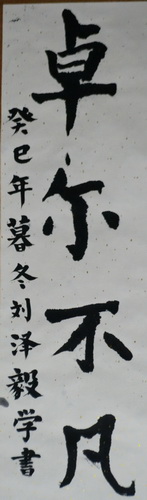 卓尔不凡
癸巳年暮冬刘泽毅学書